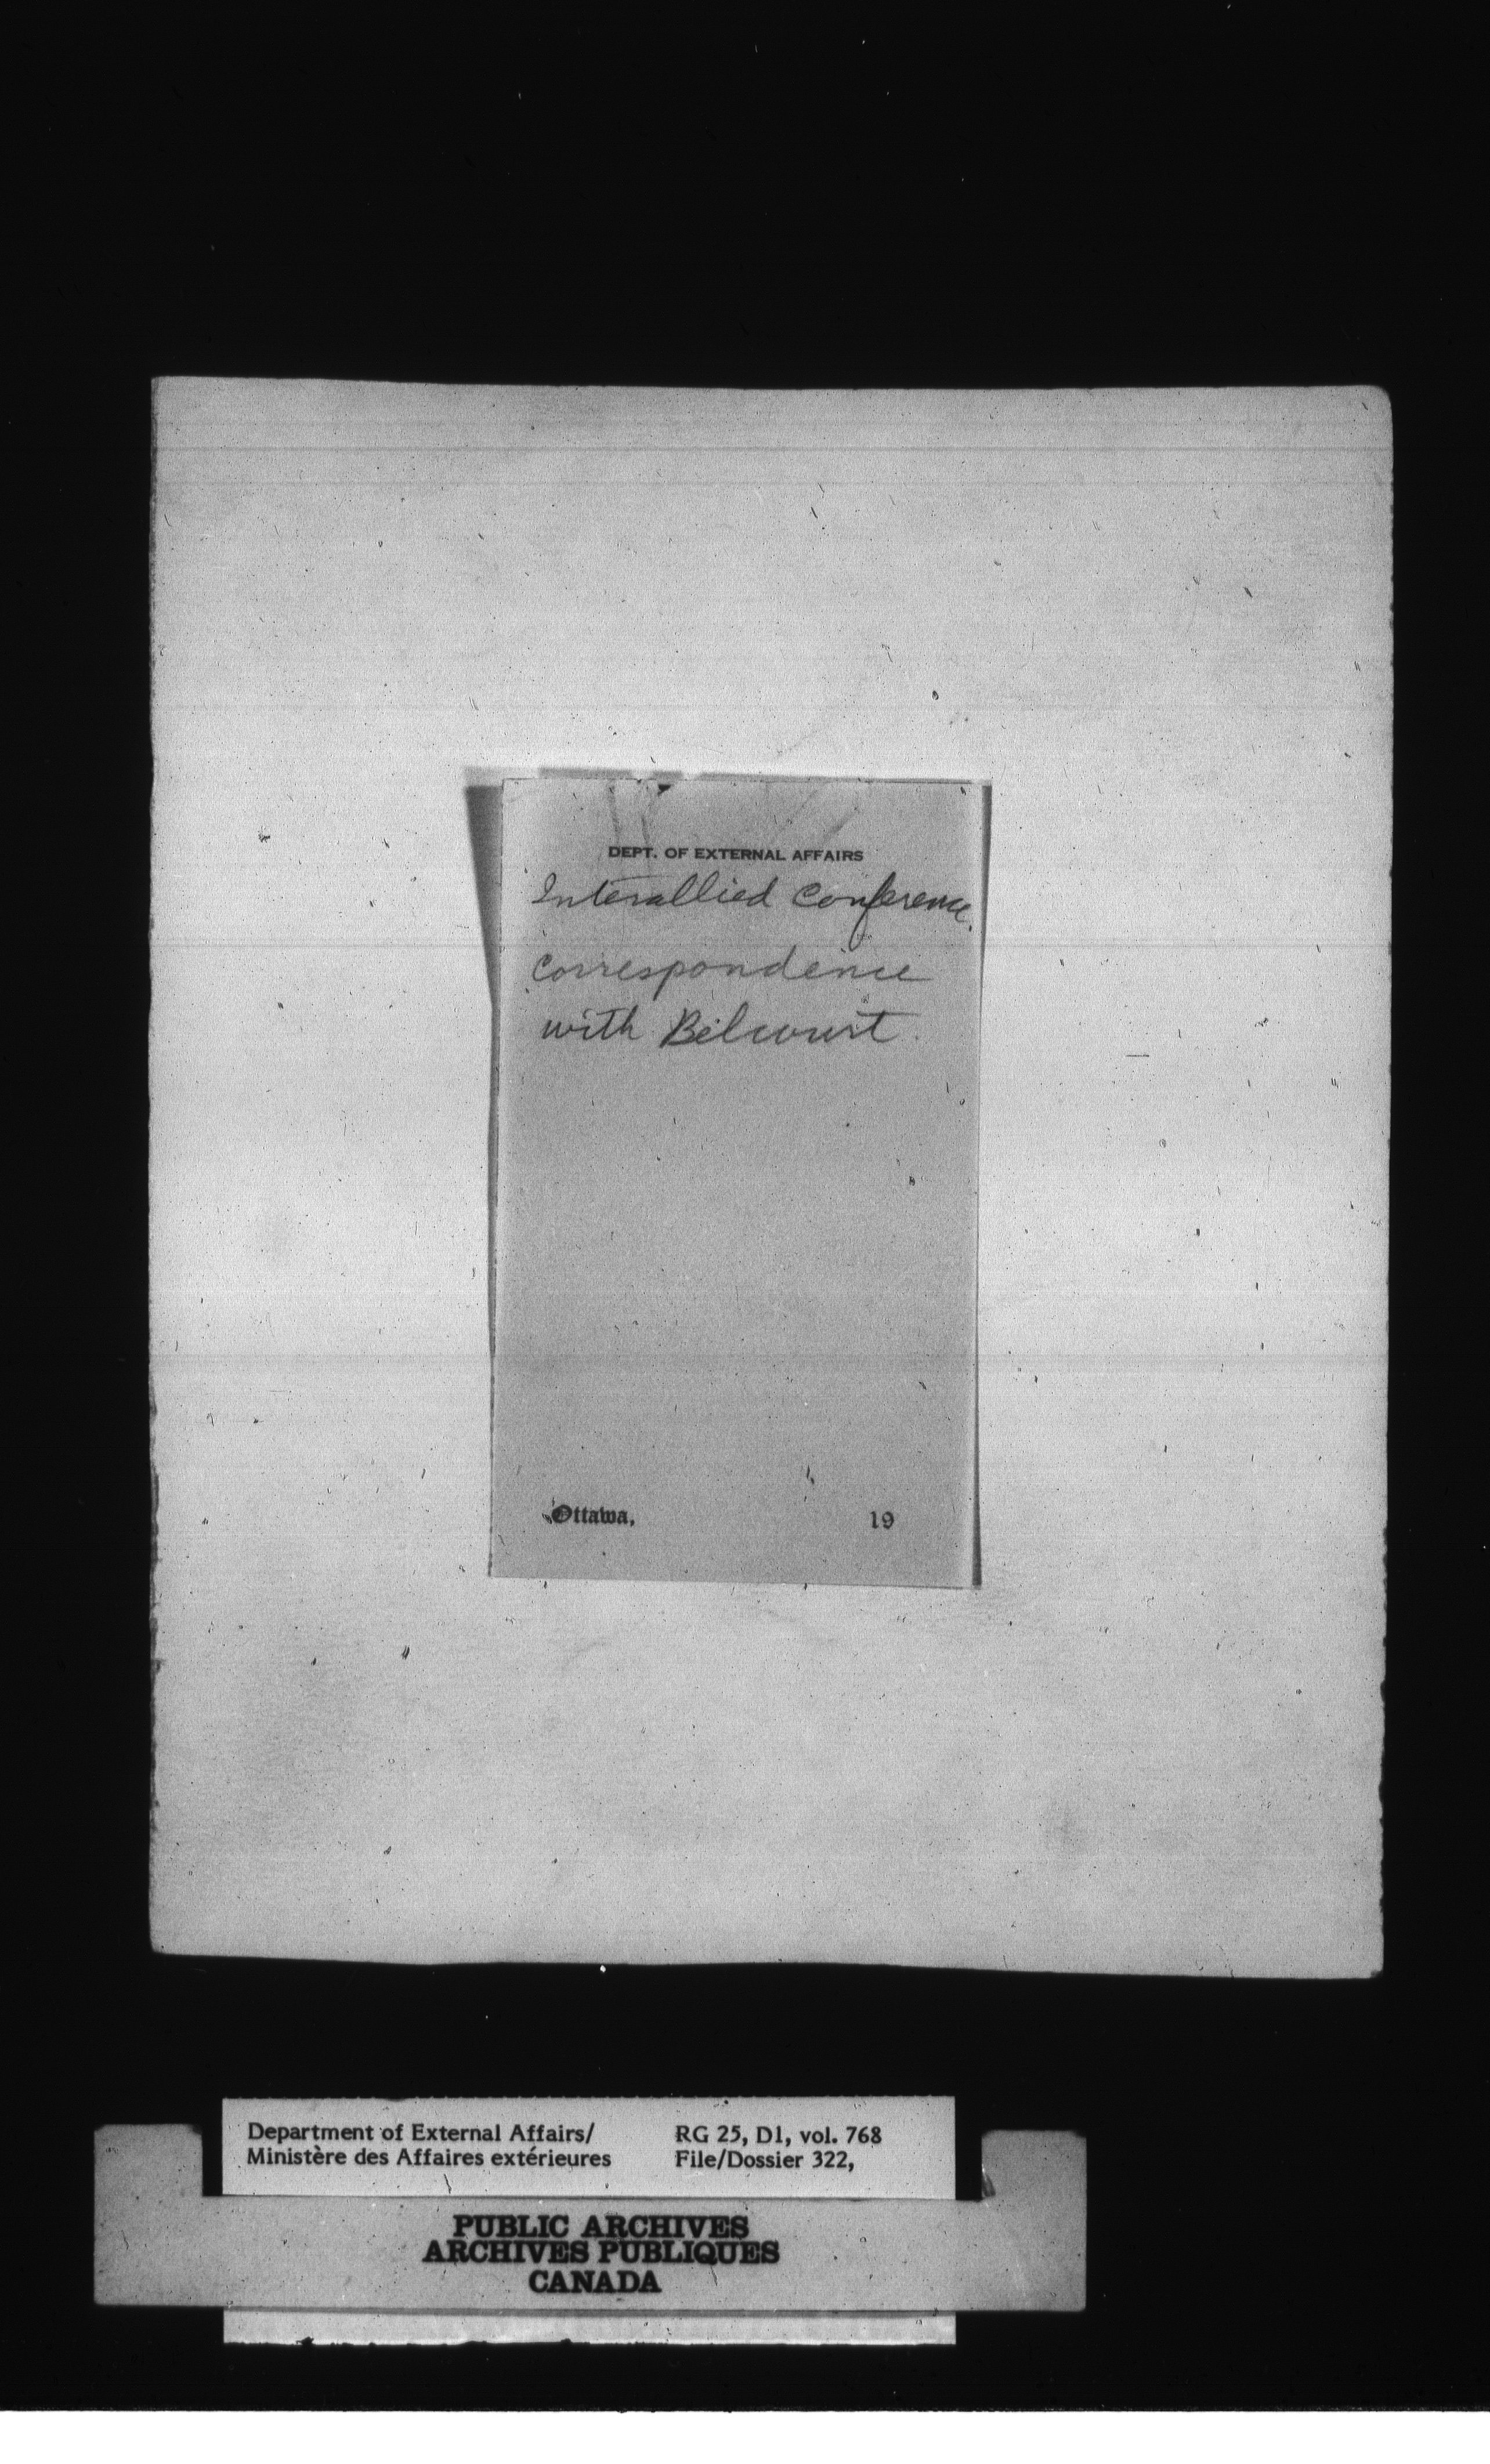 DEPT. OF EXTERNAL AFFAIRS
Interallied Conference.
Correspondence
with Belcourt.
Ottawa, 19
Department of External Affairs/ RG 25, D1, vol. 768
Ministère des Affaires extérieures File/Dossier 322,
PUBLIC ARCHIVES
ARCHIVES PUBLIQUES
CANADA